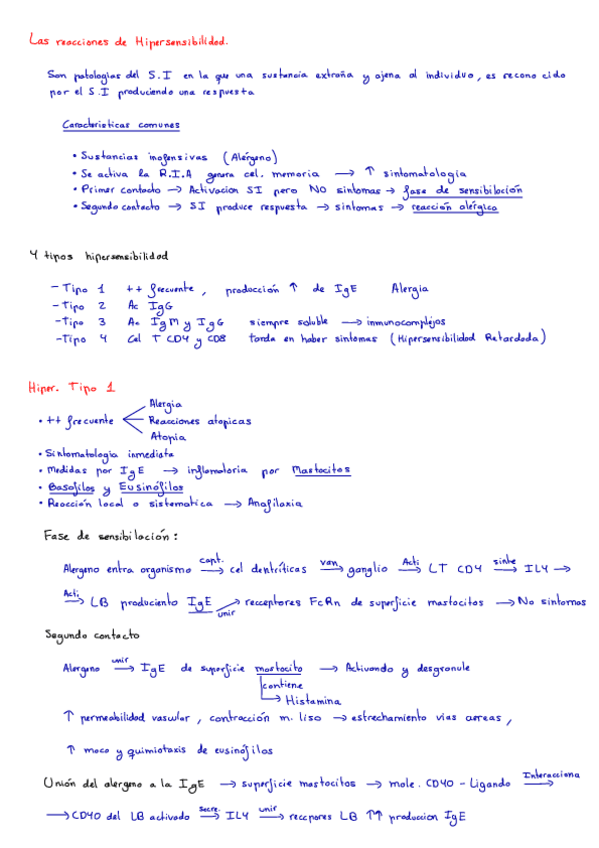 Las reacciones de Hipersensibilidad.
Son patologias del S.I en la que una sustancia extraña y ajena al individuo, es reconocido
por el S.I produciendo una respuesta
Caracteristicas comunes
• Sustancias inofensivas (Alérgeno)
• Se activa la R.I.A genera cel. memoria → ↑ sintomatologia
• Primer contacto → Activacion SI pero NO sintomas → fase de sensibilación
• Segundo contacto → SI produce respuesta → sintomas → reacción alérgica
4 tipos hipersensibilidad
- Tipo 1 ++ frecuente, producción ↑ de IgE Alergia
- Tipo 2 Ac IgG
- Tipo 3 Ac IgM y IgG siempre soluble → inmunocomplejos
- Tipo 4 Cel T CD4 y CD8 tarda en haber sintomas (Hipersensibilidad Retardada)
Hiper. Tipo 1
Alergia
• ++ frecuente Reacciones atopicas
Atopia
• Sintomatologia inmediata
• Medidas por IgE → inflamatoria por Mastocitos
• Basofilos y Eusinófilos
• Reacción local o sistematica → Anafilaxia
Fase de sensibilación:
Alergeno entra organismo capt. → cel dentríticas van → ganglio Acti → LT CD4 sinte → IL4 →
Acti → LB produciento IgE unir → recceptores FcRn de superficie mastocitos → No sintomas
Segundo contacto
Alergeno unir → IgE de superficie mastocito → Activando y desgranule
contiene
→ Histamina
↑ permeabilidad vascular, contracción m. liso → estrechamiento vias aereas,
↑ moco y quimiotaxis de eusinófilos
Unión del alergeno a la IgE → superficie mastocitos → mole. CD40 - Ligando Interacciona →
→ CD40 del LB activado secre. → IL4 unir → reccpores LB ↑↑ produccion IgE